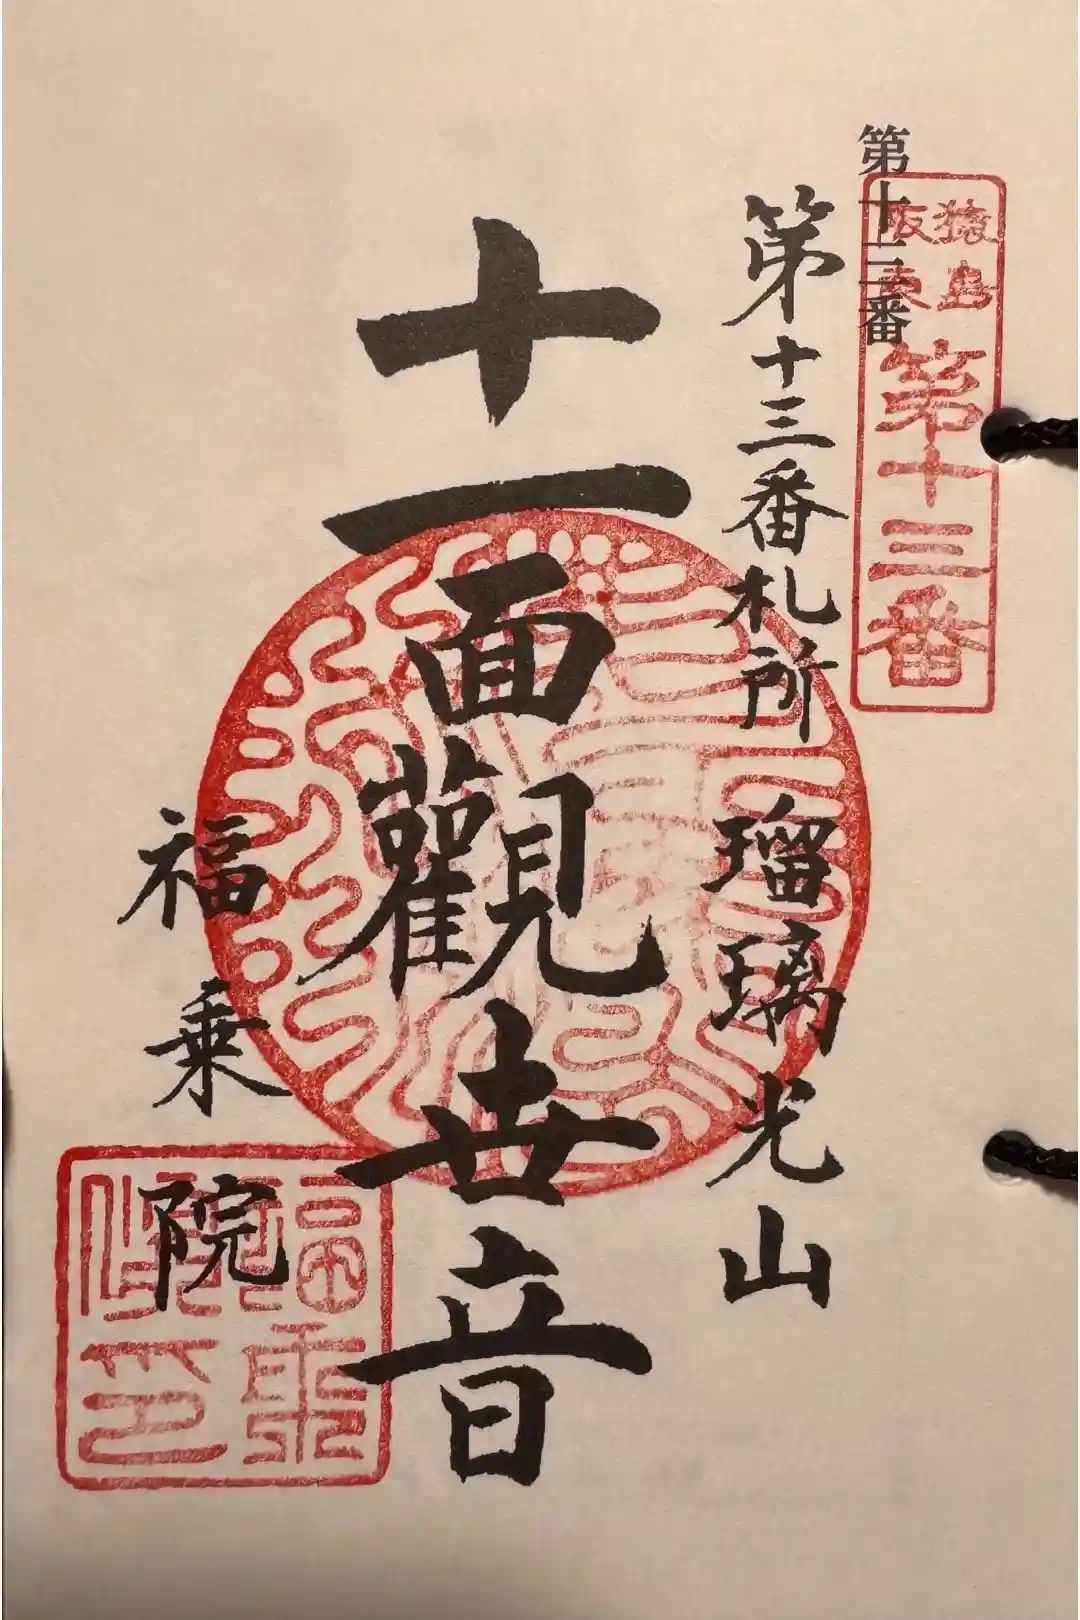 猿島
阪東
第十三番
第十三番
第十三番札所 瑠璃光山
十一面觀世音
福乗院